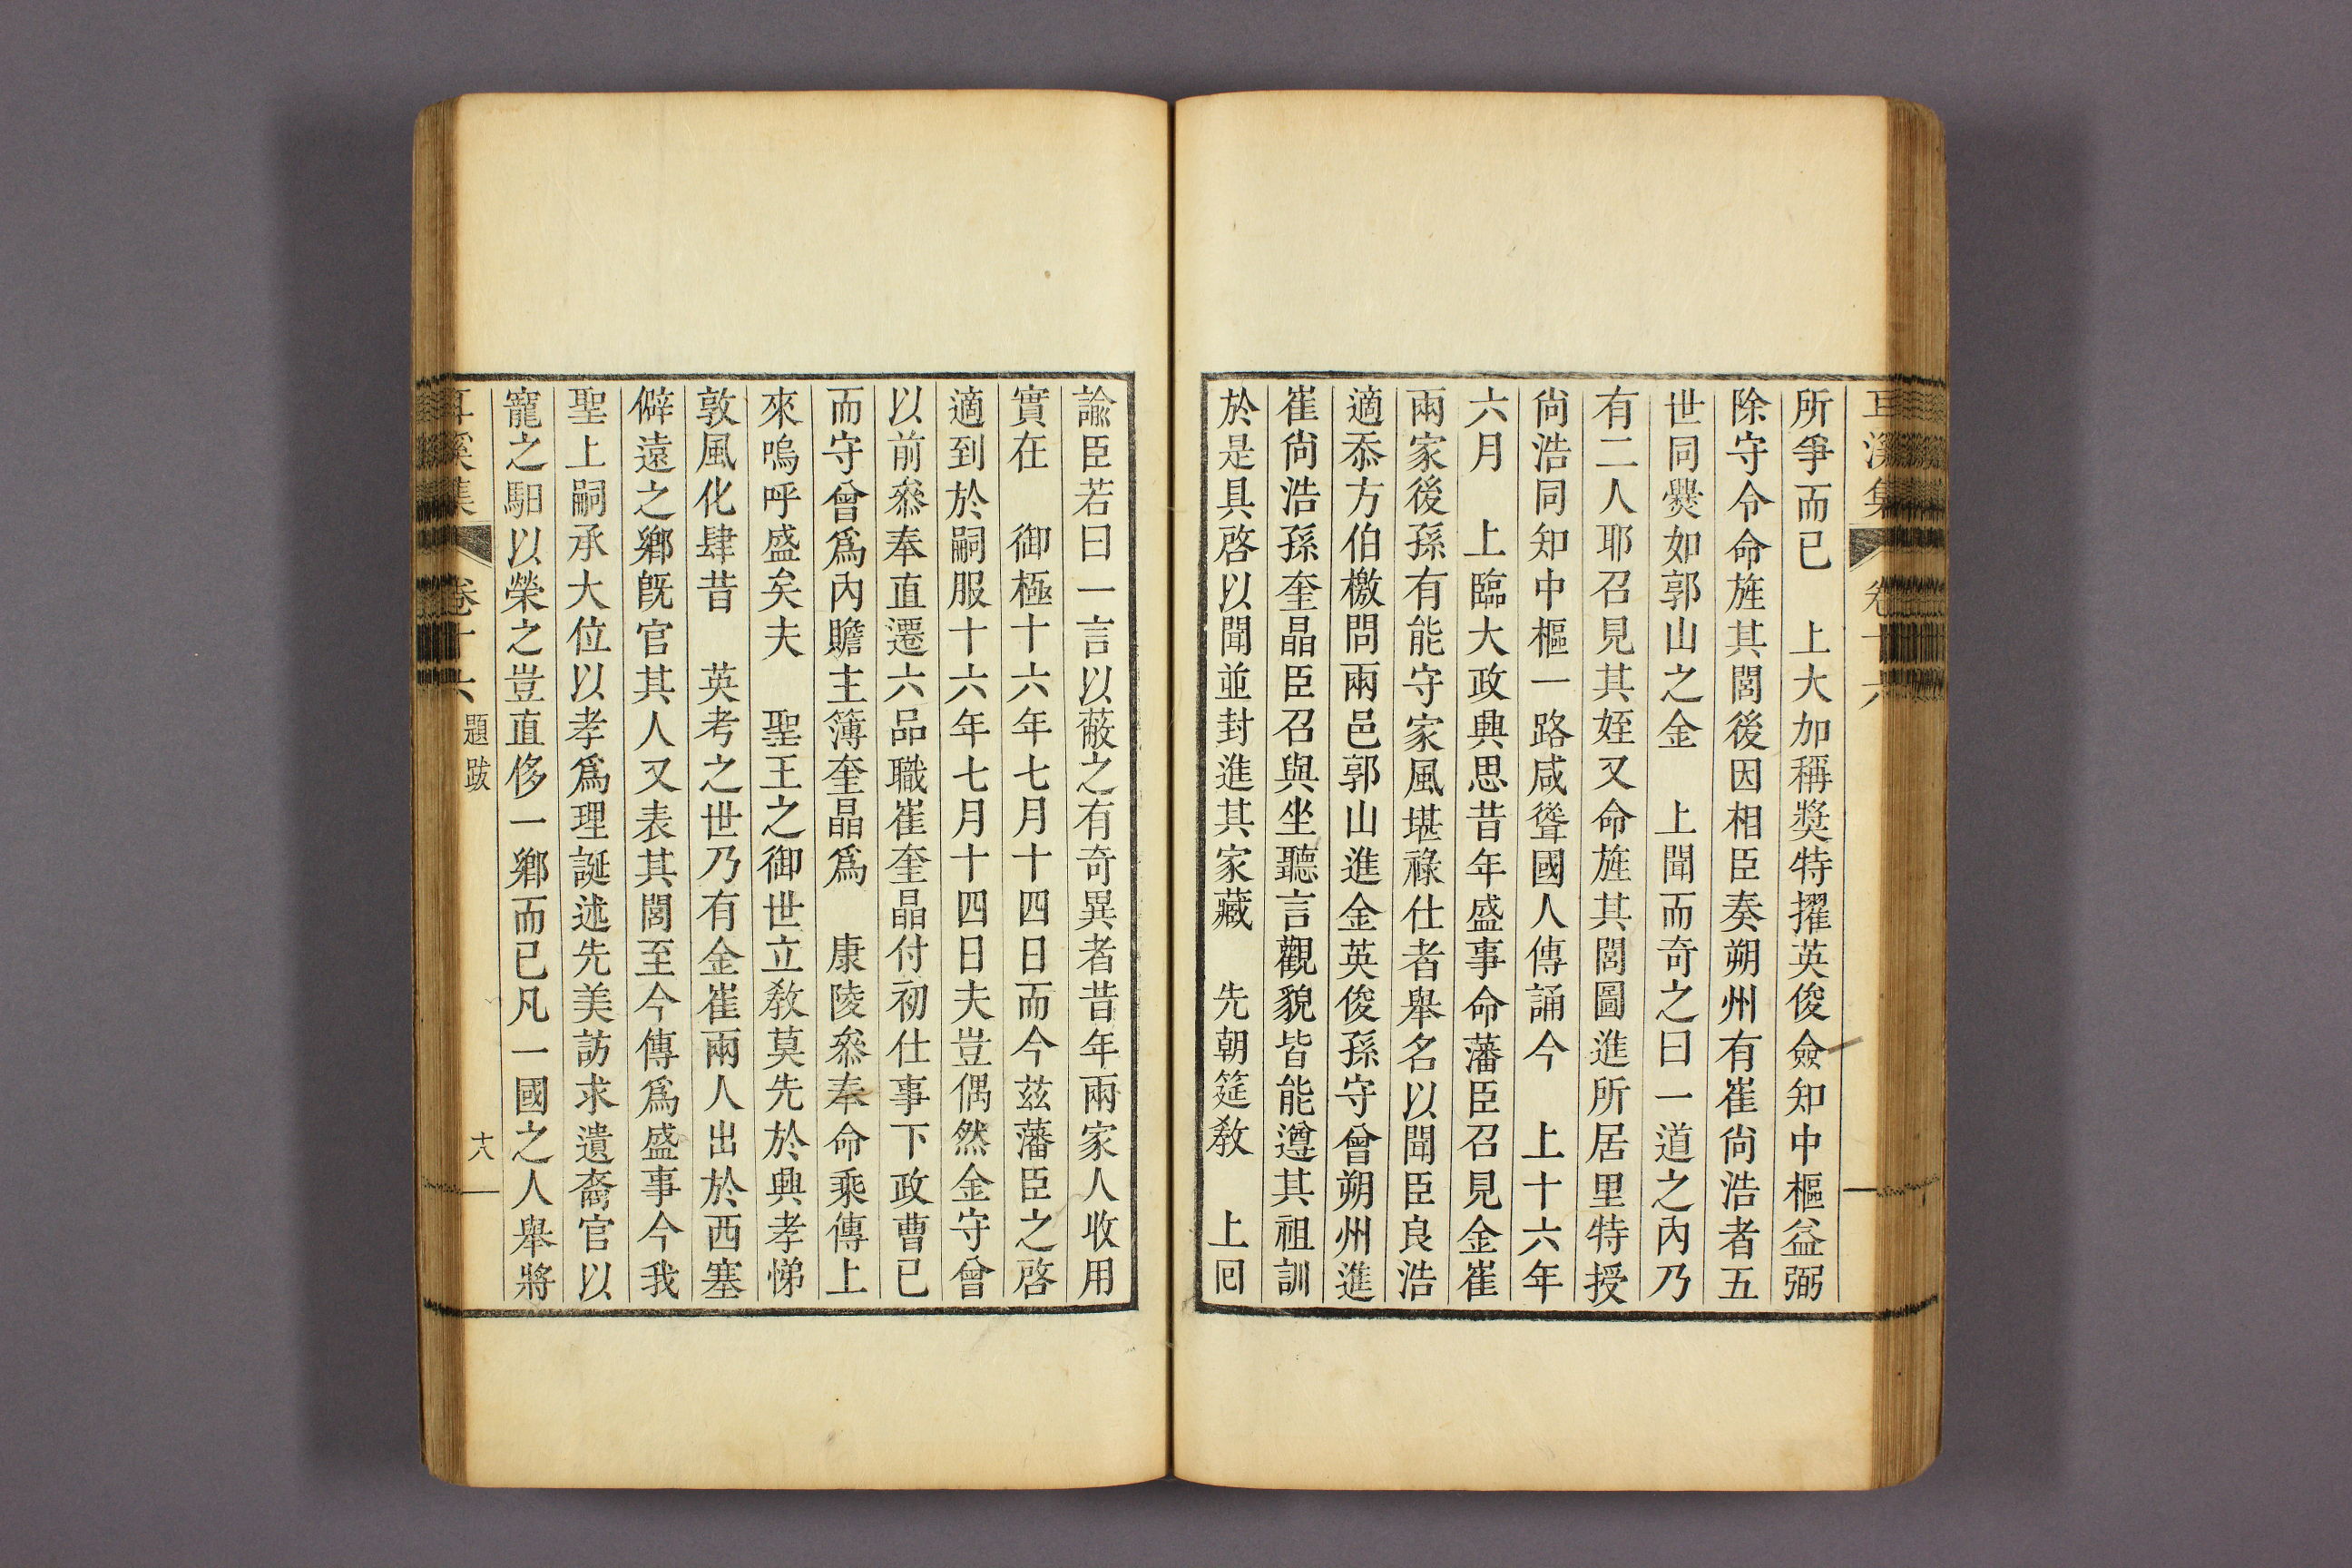 耳溪集 卷十六
所爭而已 上大加稱奬特擢英俊僉知中樞益弼
除守令命旌其閭後因相臣奏朔州有崔尙浩者五
世同爨如郭山之金 上聞而奇之曰一道之內乃
有二人耶召見其姪又命旌其閭圖進所居里特授
尙浩同知中樞一路咸聳國人傳誦今 上十六年
六月 上臨大政興思昔年盛事命藩臣召見金崔
兩家後孫有能守家風堪祿仕者舉名以聞臣良浩
適忝方伯檄問兩邑郭山進金英俊孫守曾朔州進
崔尙浩孫奎晶臣召與坐聽言觀貌皆能遵其祖訓
於是具啓以聞並封進其家藏 先朝筵敎 上回
諭臣若曰一言以蔽之有奇異者昔年兩家人收用
實在 御極十六年七月十四日而今玆藩臣之啓
適到於嗣服十六年七月十四日夫豈偶然金守曾
以前叅奉直遷六品職崔奎晶付初仕事下政曹已
而守曾爲內贍主簿奎晶爲 康陵叅奉命乘傳上
來嗚呼盛矣夫 聖王之御世立敎莫先於興孝悌
敦風化肆昔 英考之世乃有金崔兩人出於西塞
僻遠之鄕旣官其人又表其閭至今傳爲盛事今我
聖上嗣承大位以孝爲理誕述先美訪求遺裔官以
寵之馹以榮之豈直侈一鄕而已凡一國之人舉將
耳溪集 卷十六 題跋 十八